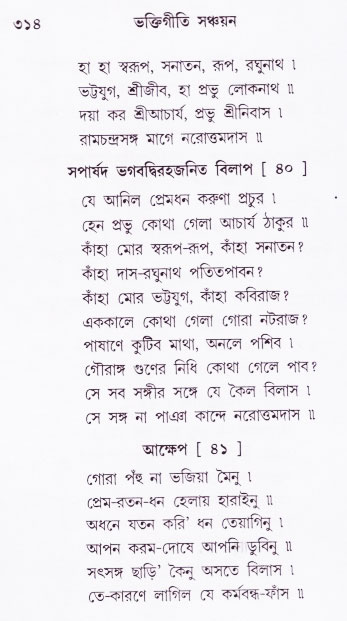 ৩১৪ ভক্তিগীতি সঞ্চয়ন
হা হা স্বরূপ, সনাতন, রূপ, রঘুনাথ ৷
ভট্টযুগ, শ্রীজীব, হা প্রভু লোকনাথ ৷৷
দয়া কর শ্রীআচার্য, প্রভু শ্রীনিবাস ৷
রামচন্দ্রসঙ্গ মাগে নরোত্তমদাস ৷৷
সপার্ষদ ভগবদ্বিরহজনিত বিলাপ [ ৪০ ]
যে আনিল প্রেমধন করুণা প্রচুর ৷
হেন প্রভু কোথা গেলা আচার্য ঠাকুর ৷৷
কাঁহা মোর স্বরূপ-রূপ, কাঁহা সনাতন?
কাঁহা দাস-রঘুনাথ পতিতপাবন?
কাঁহা মোর ভট্টযুগ, কাঁহা কবিরাজ?
এককালে কোথা গেলা গোরা নটরাজ?
পাষাণে কুটিব মাথা, অনলে পশিব ৷
গৌরাঙ্গ গুণের নিধি কোথা গেলে পাব?
সে সব সঙ্গীর সঙ্গে যে কৈল বিলাস ৷
সে সঙ্গ না পাঞা কান্দে নরোত্তমদাস ৷৷
আক্ষেপ [ ৪১ ]
গোরা পঁহু না ভজিয়া মৈনু ৷
প্রেম-রতন-ধন হেলায় হারাইনু ৷
অধনে যতন করি’ ধন তেয়াগিনু ৷
আপন করম-দোষে আপনি ডুবিনু ৷৷
সৎসঙ্গ ছাড়ি’ কৈনু অসতে বিলাস ৷
তে-কারণে লাগিল যে কর্মবন্ধ-ফাঁস ৷৷